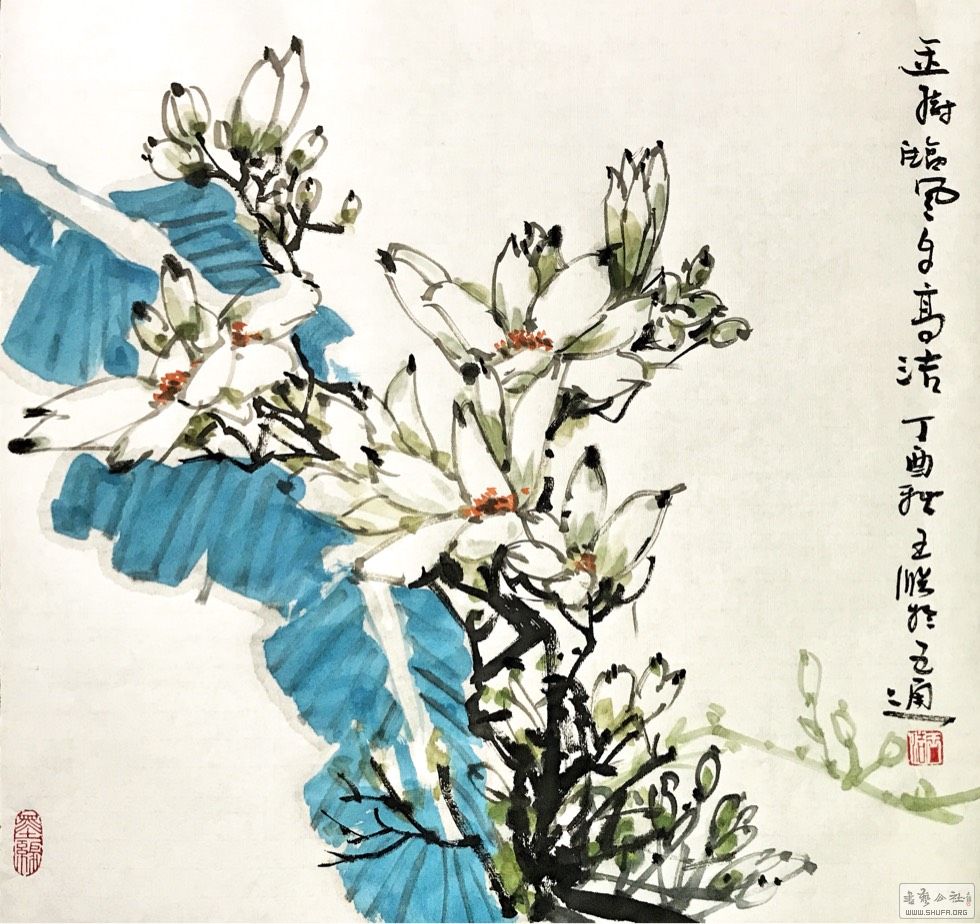 玉樹臨風自高洁 丁酉秋 王勝於五通
書藝公社
WWW.SHUFA.ORG